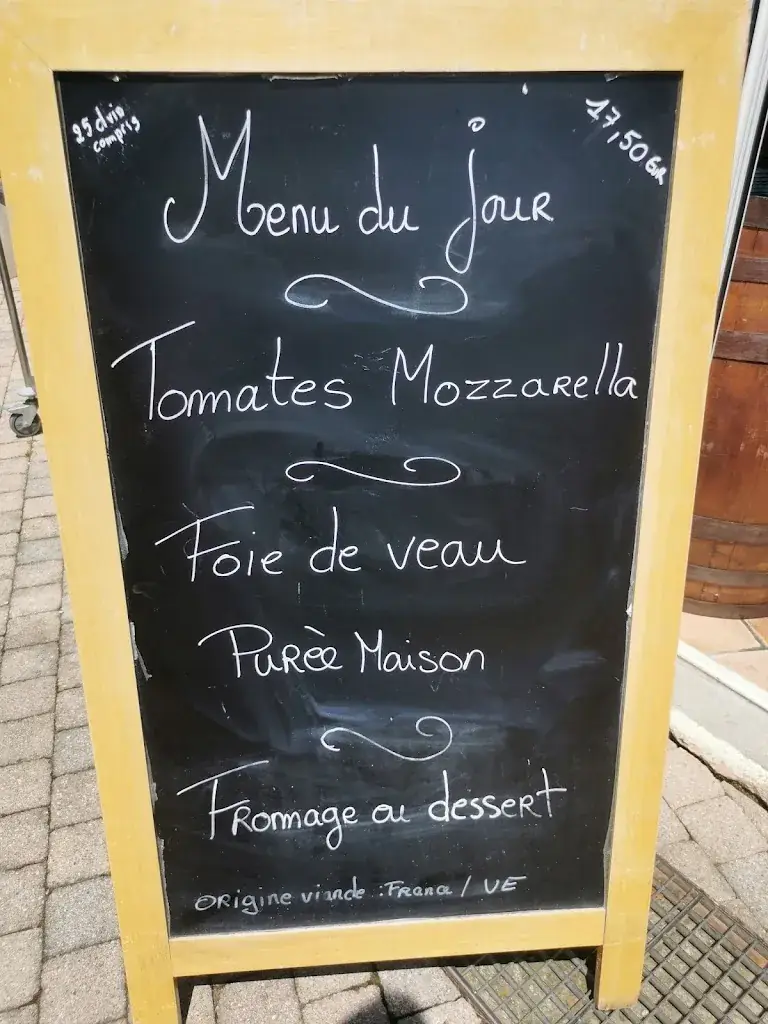 25 dvin
compris
17,50 EUR
Menu du jour
Tomates Mozzarella
Foie de veau
Purèe Maison
Fromage ou dessert
Origine viande : France / UE